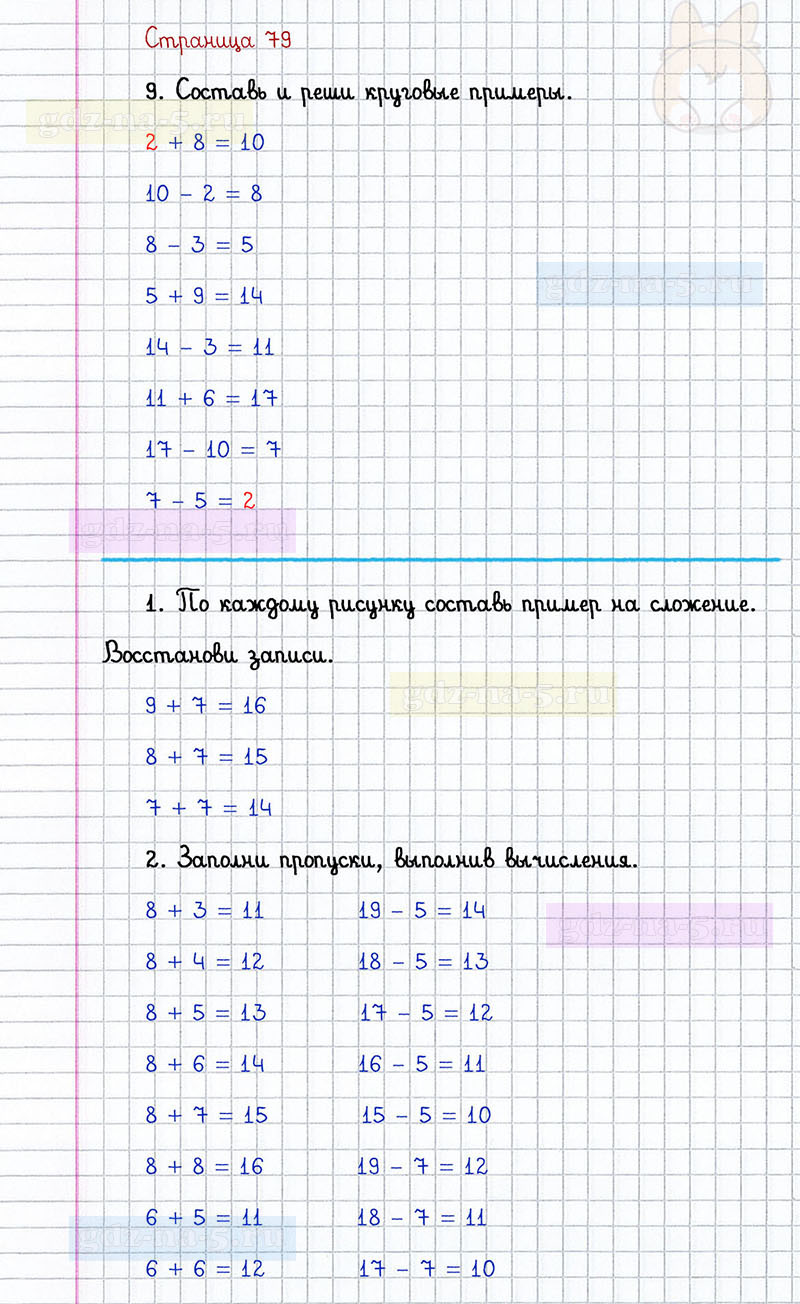 Страница 79
9. Составь и реши круговые примеры.
gdz-na-5.ru
2 + 8 = 10
10 - 2 = 8
8 - 3 = 5
gdz-na-5.ru
5 + 9 = 14
14 - 3 = 11
11 + 6 = 17
17 - 10 = 7
7 - 5 = 2
gdz-na-5.ru
1. По каждому рисунку составь пример на сложение.
Восстанови записи.
gdz-na-5.ru
9 + 7 = 16
8 + 7 = 15
7 + 7 = 14
2. Заполни пропуски, выполнив вычисления.
8 + 3 = 11 19 - 5 = 14
gdz-na-5.ru
8 + 4 = 12 18 - 5 = 13
8 + 5 = 13 17 - 5 = 12
8 + 6 = 14 16 - 5 = 11
8 + 7 = 15 15 - 5 = 10
8 + 8 = 16 19 - 7 = 12
6 + 5 = 11 18 - 7 = 11
gdz-na-5.ru
6 + 6 = 12 17 - 7 = 10